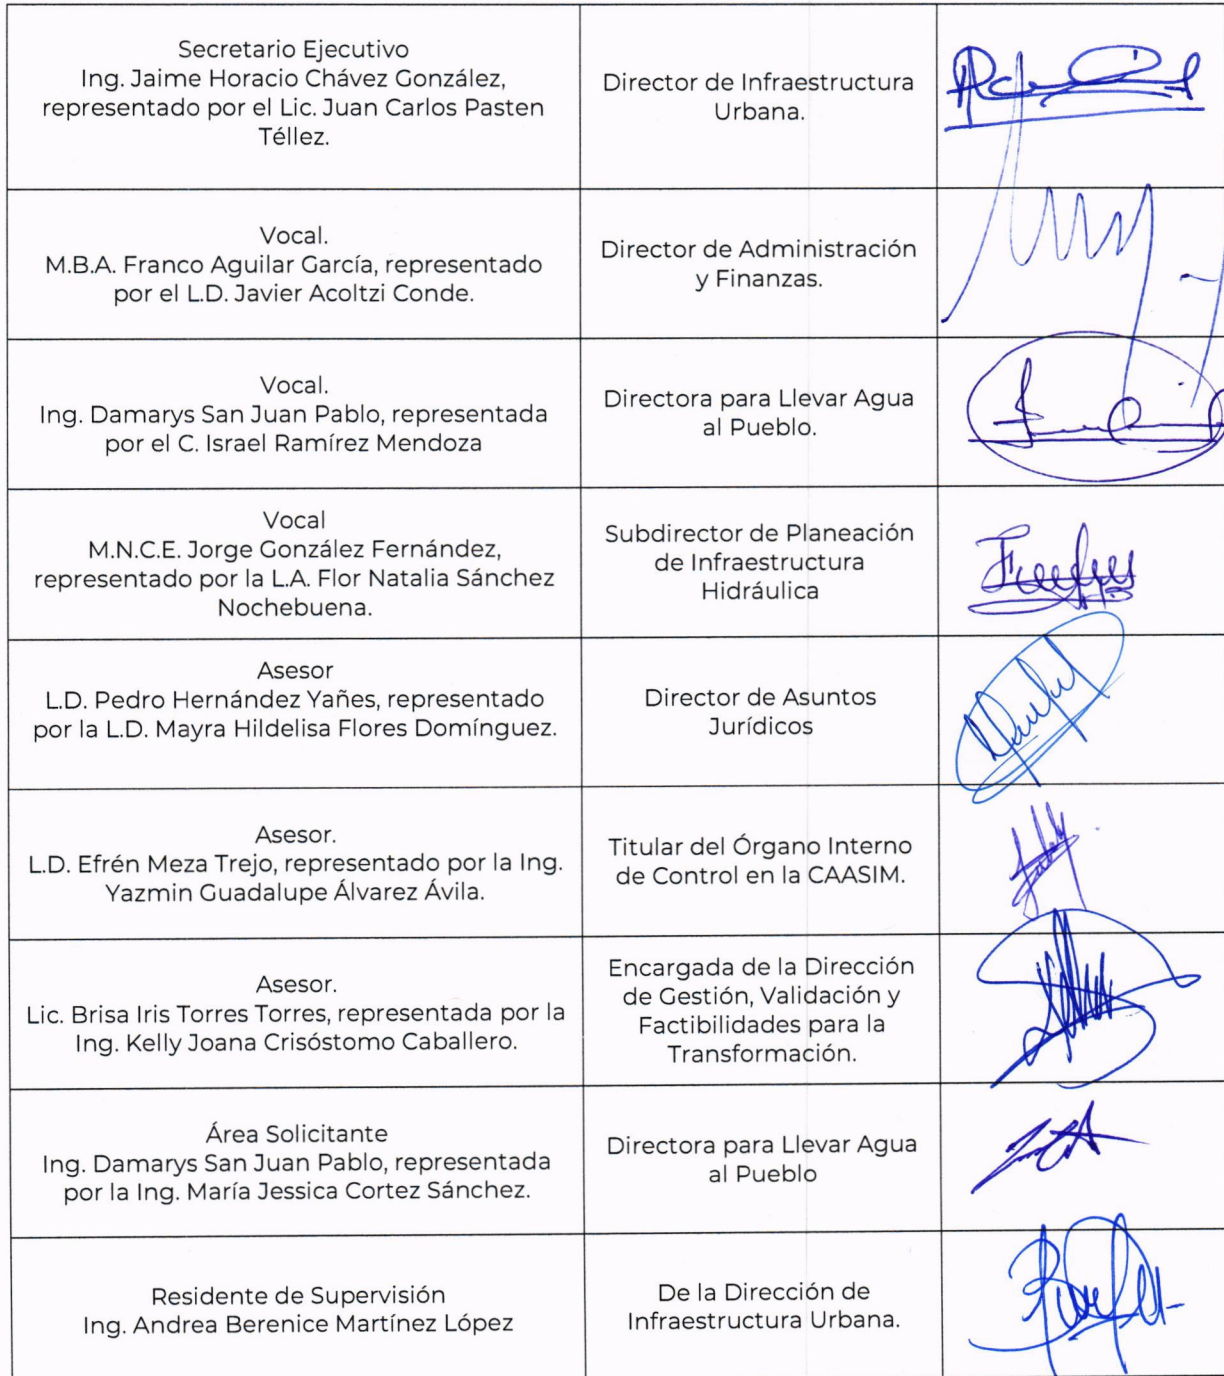 Secretario Ejecutivo
Ing. Jaime Horacio Chávez González,
representado por el Lic. Juan Carlos Pasten
Téllez.
Director de Infraestructura
Urbana.
Vocal.
M.B.A. Franco Aguilar García, representado
por el L.D. Javier Acoltzi Conde.
Director de Administración
y Finanzas.
Vocal.
Ing. Damarys San Juan Pablo, representada
por el C. Israel Ramírez Mendoza
Directora para Llevar Agua
al Pueblo.
Vocal
M.N.C.E. Jorge González Fernández,
representado por la L.A. Flor Natalia Sánchez
Nochebuena.
Subdirector de Planeación
de Infraestructura
Hidráulica
Asesor
L.D. Pedro Hernández Yañes, representado
por la L.D. Mayra Hildelisa Flores Domínguez.
Director de Asuntos
Jurídicos
Asesor.
L.D. Efrén Meza Trejo, representado por la Ing.
Yazmin Guadalupe Álvarez Ávila.
Titular del Órgano Interno
de Control en la CAASIM.
Asesor.
Lic. Brisa Iris Torres Torres, representada por la
Ing. Kelly Joana Crisóstomo Caballero.
Encargada de la Dirección
de Gestión, Validación y
Factibilidades para la
Transformación.
Área Solicitante
Ing. Damarys San Juan Pablo, representada
por la Ing. María Jessica Cortez Sánchez.
Directora para Llevar Agua
al Pueblo
Residente de Supervisión
Ing. Andrea Berenice Martínez López
De la Dirección de
Infraestructura Urbana.